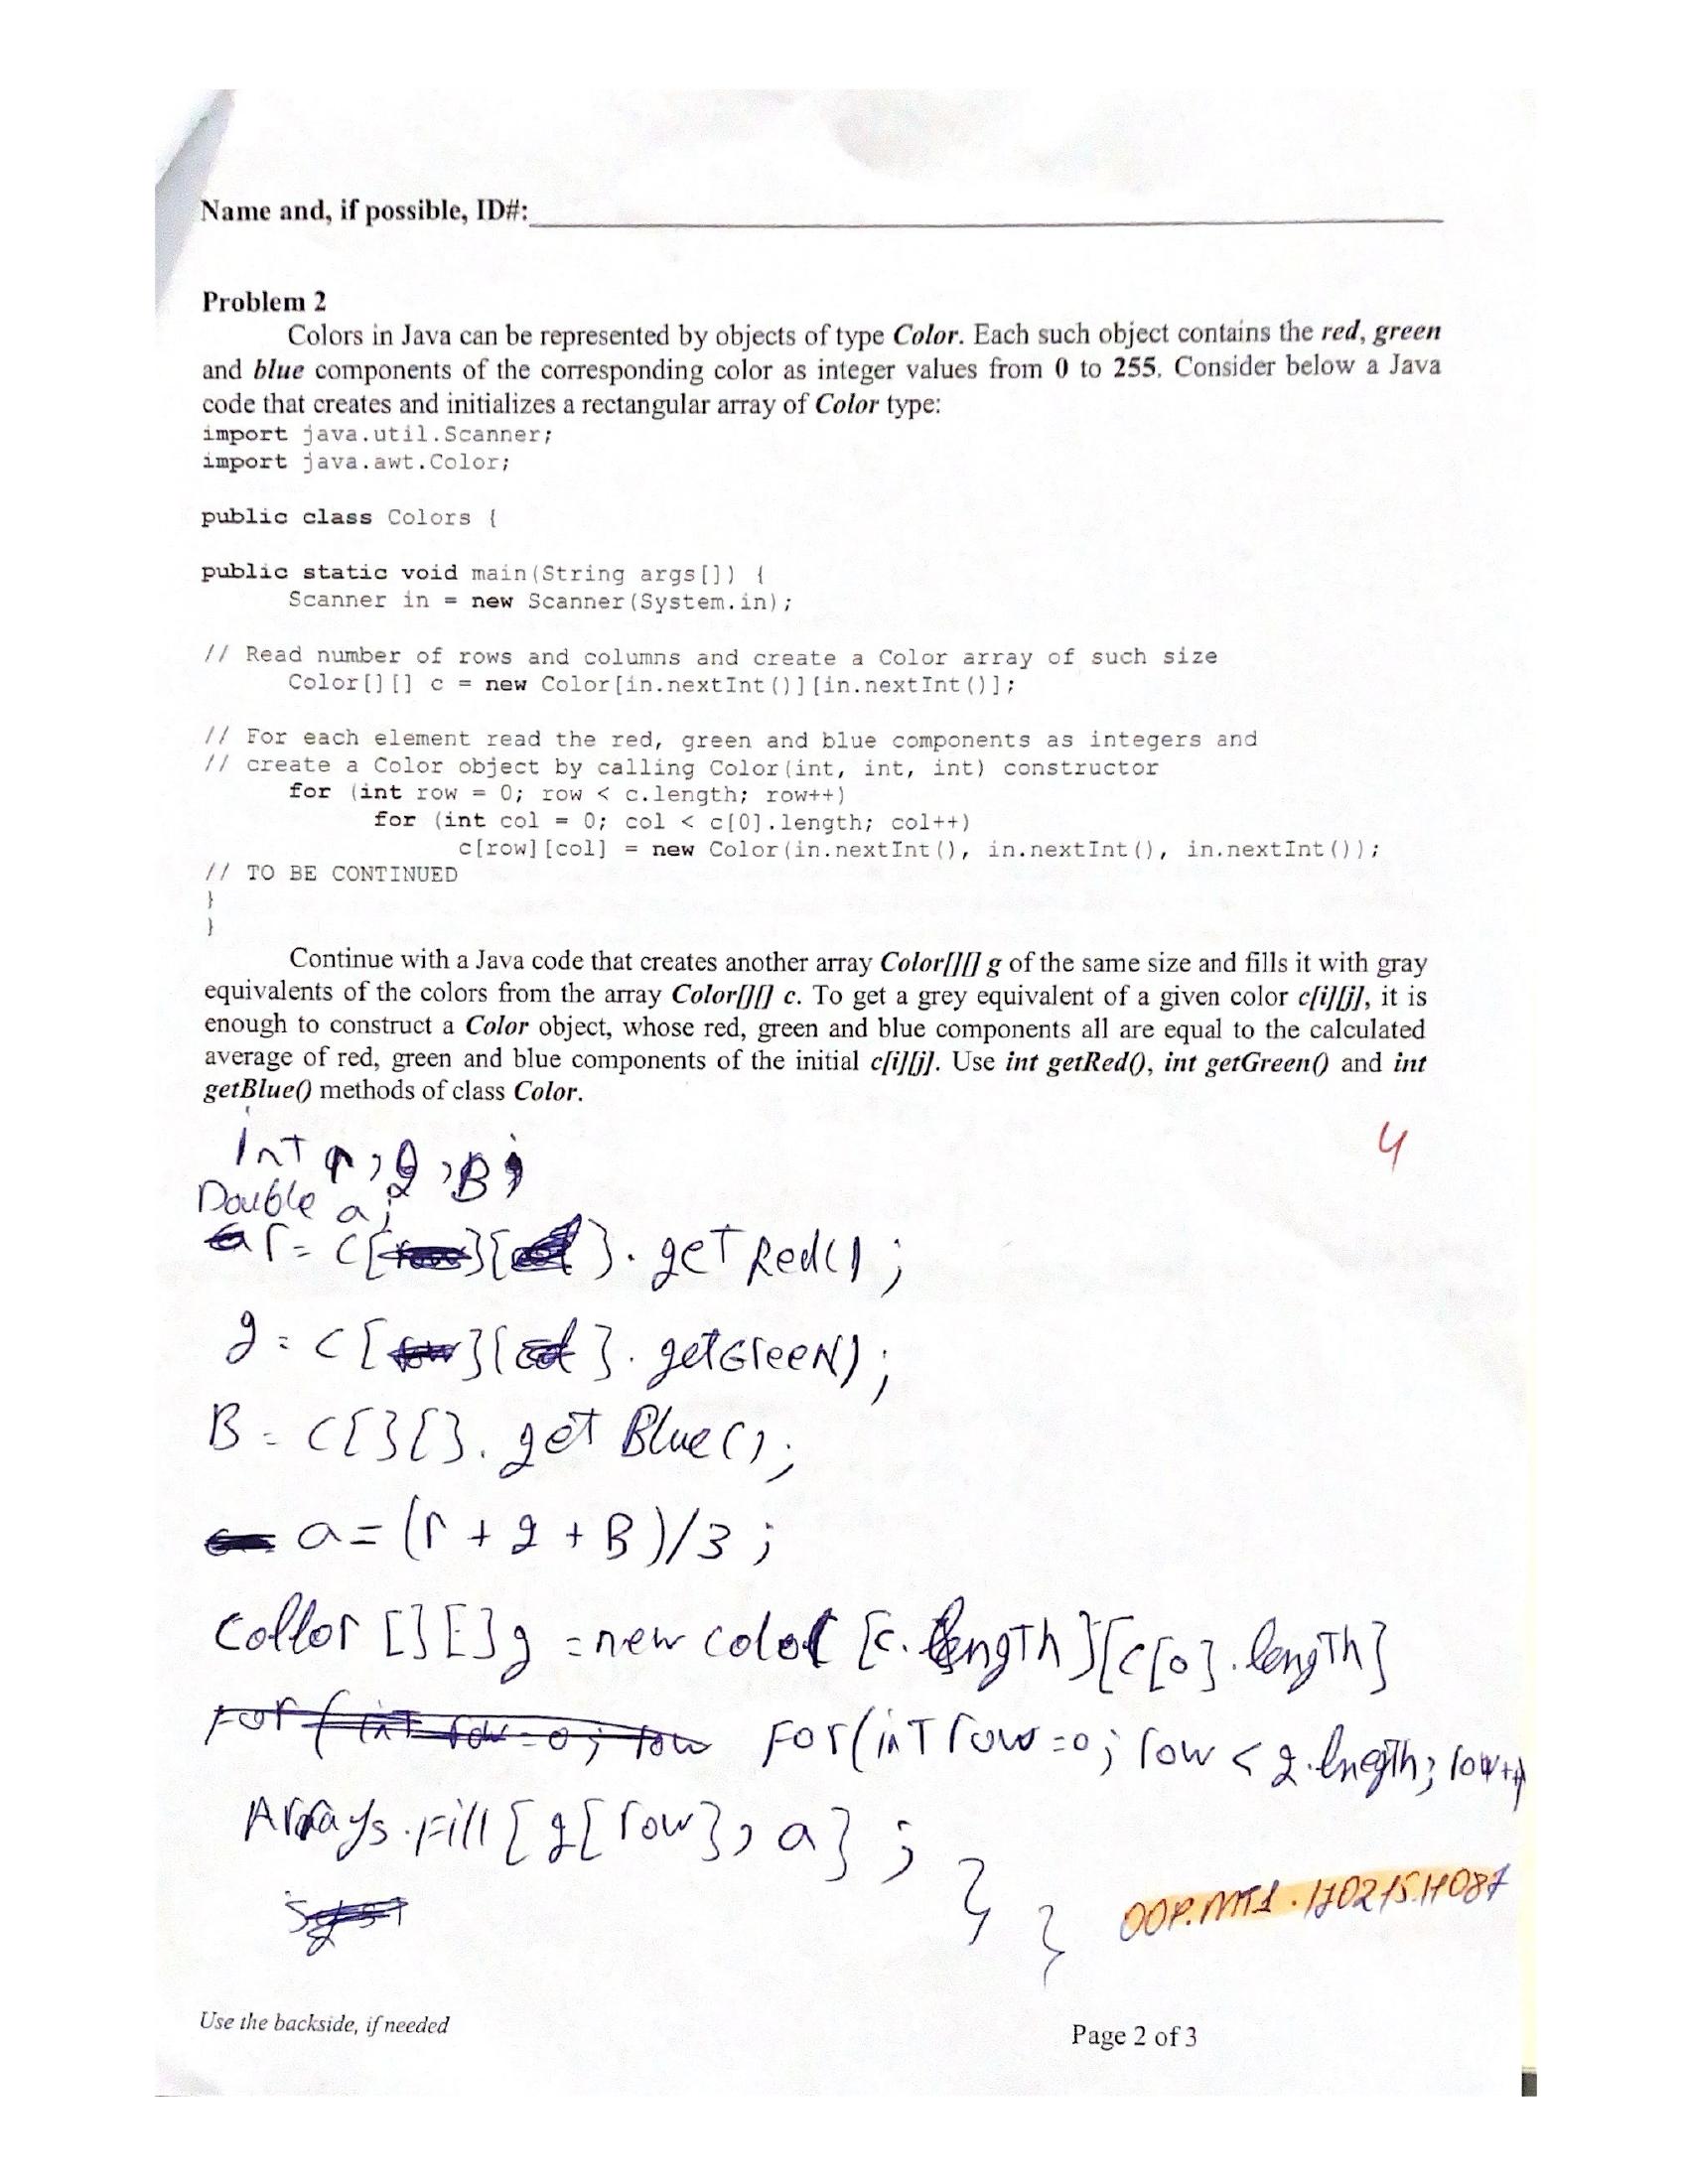 Name and, if possible, ID#:
Problem 2
Colors in Java can be represented by objects of type Color. Each such object contains the red, green
and blue components of the corresponding color as integer values from 0 to 255. Consider below a Java
code that creates and initializes a rectangular array of Color type:
import java.util.Scanner;
import java.awt.Color;
public class Colors {
public static void main(String args[]) {
Scanner in = new Scanner(System.in);
// Read number of rows and columns and create a Color array of such size
Color[][] c = new Color[in.nextInt()][in.nextInt()];
// For each element read the red, green and blue components as integers and
// create a Color object by calling Color(int, int, int) constructor
for (int row = 0; row < c.length; row++)
for (int col = 0; col < c[0].length; col++)
c[row][col] = new Color(in.nextInt(), in.nextInt(), in.nextInt());
// TO BE CONTINUED
}
}
Continue with a Java code that creates another array Color[][] g of the same size and fills it with gray
equivalents of the colors from the array Color[][] c. To get a grey equivalent of a given color c[i][j], it is
enough to construct a Color object, whose red, green and blue components all are equal to the calculated
average of red, green and blue components of the initial c[i][j]. Use int getRed(), int getGreen() and int
getBlue() methods of class Color.
4
Int r, g, B;
Double a;
r = c[][]. getRed();
g = c[][]. getGreeN);
B = c[][]. getBlue();
a = (r + g + B)/3;
Collor [][] g = new color [c.length][c[0].length]
For (int row = 0; row For(int row = 0; row < g.lnegth; row++)
Arrays.Fill[g[row], a];
}
}
OOP.MT1.170215.H087
Use the backside, if needed
Page 2 of 3